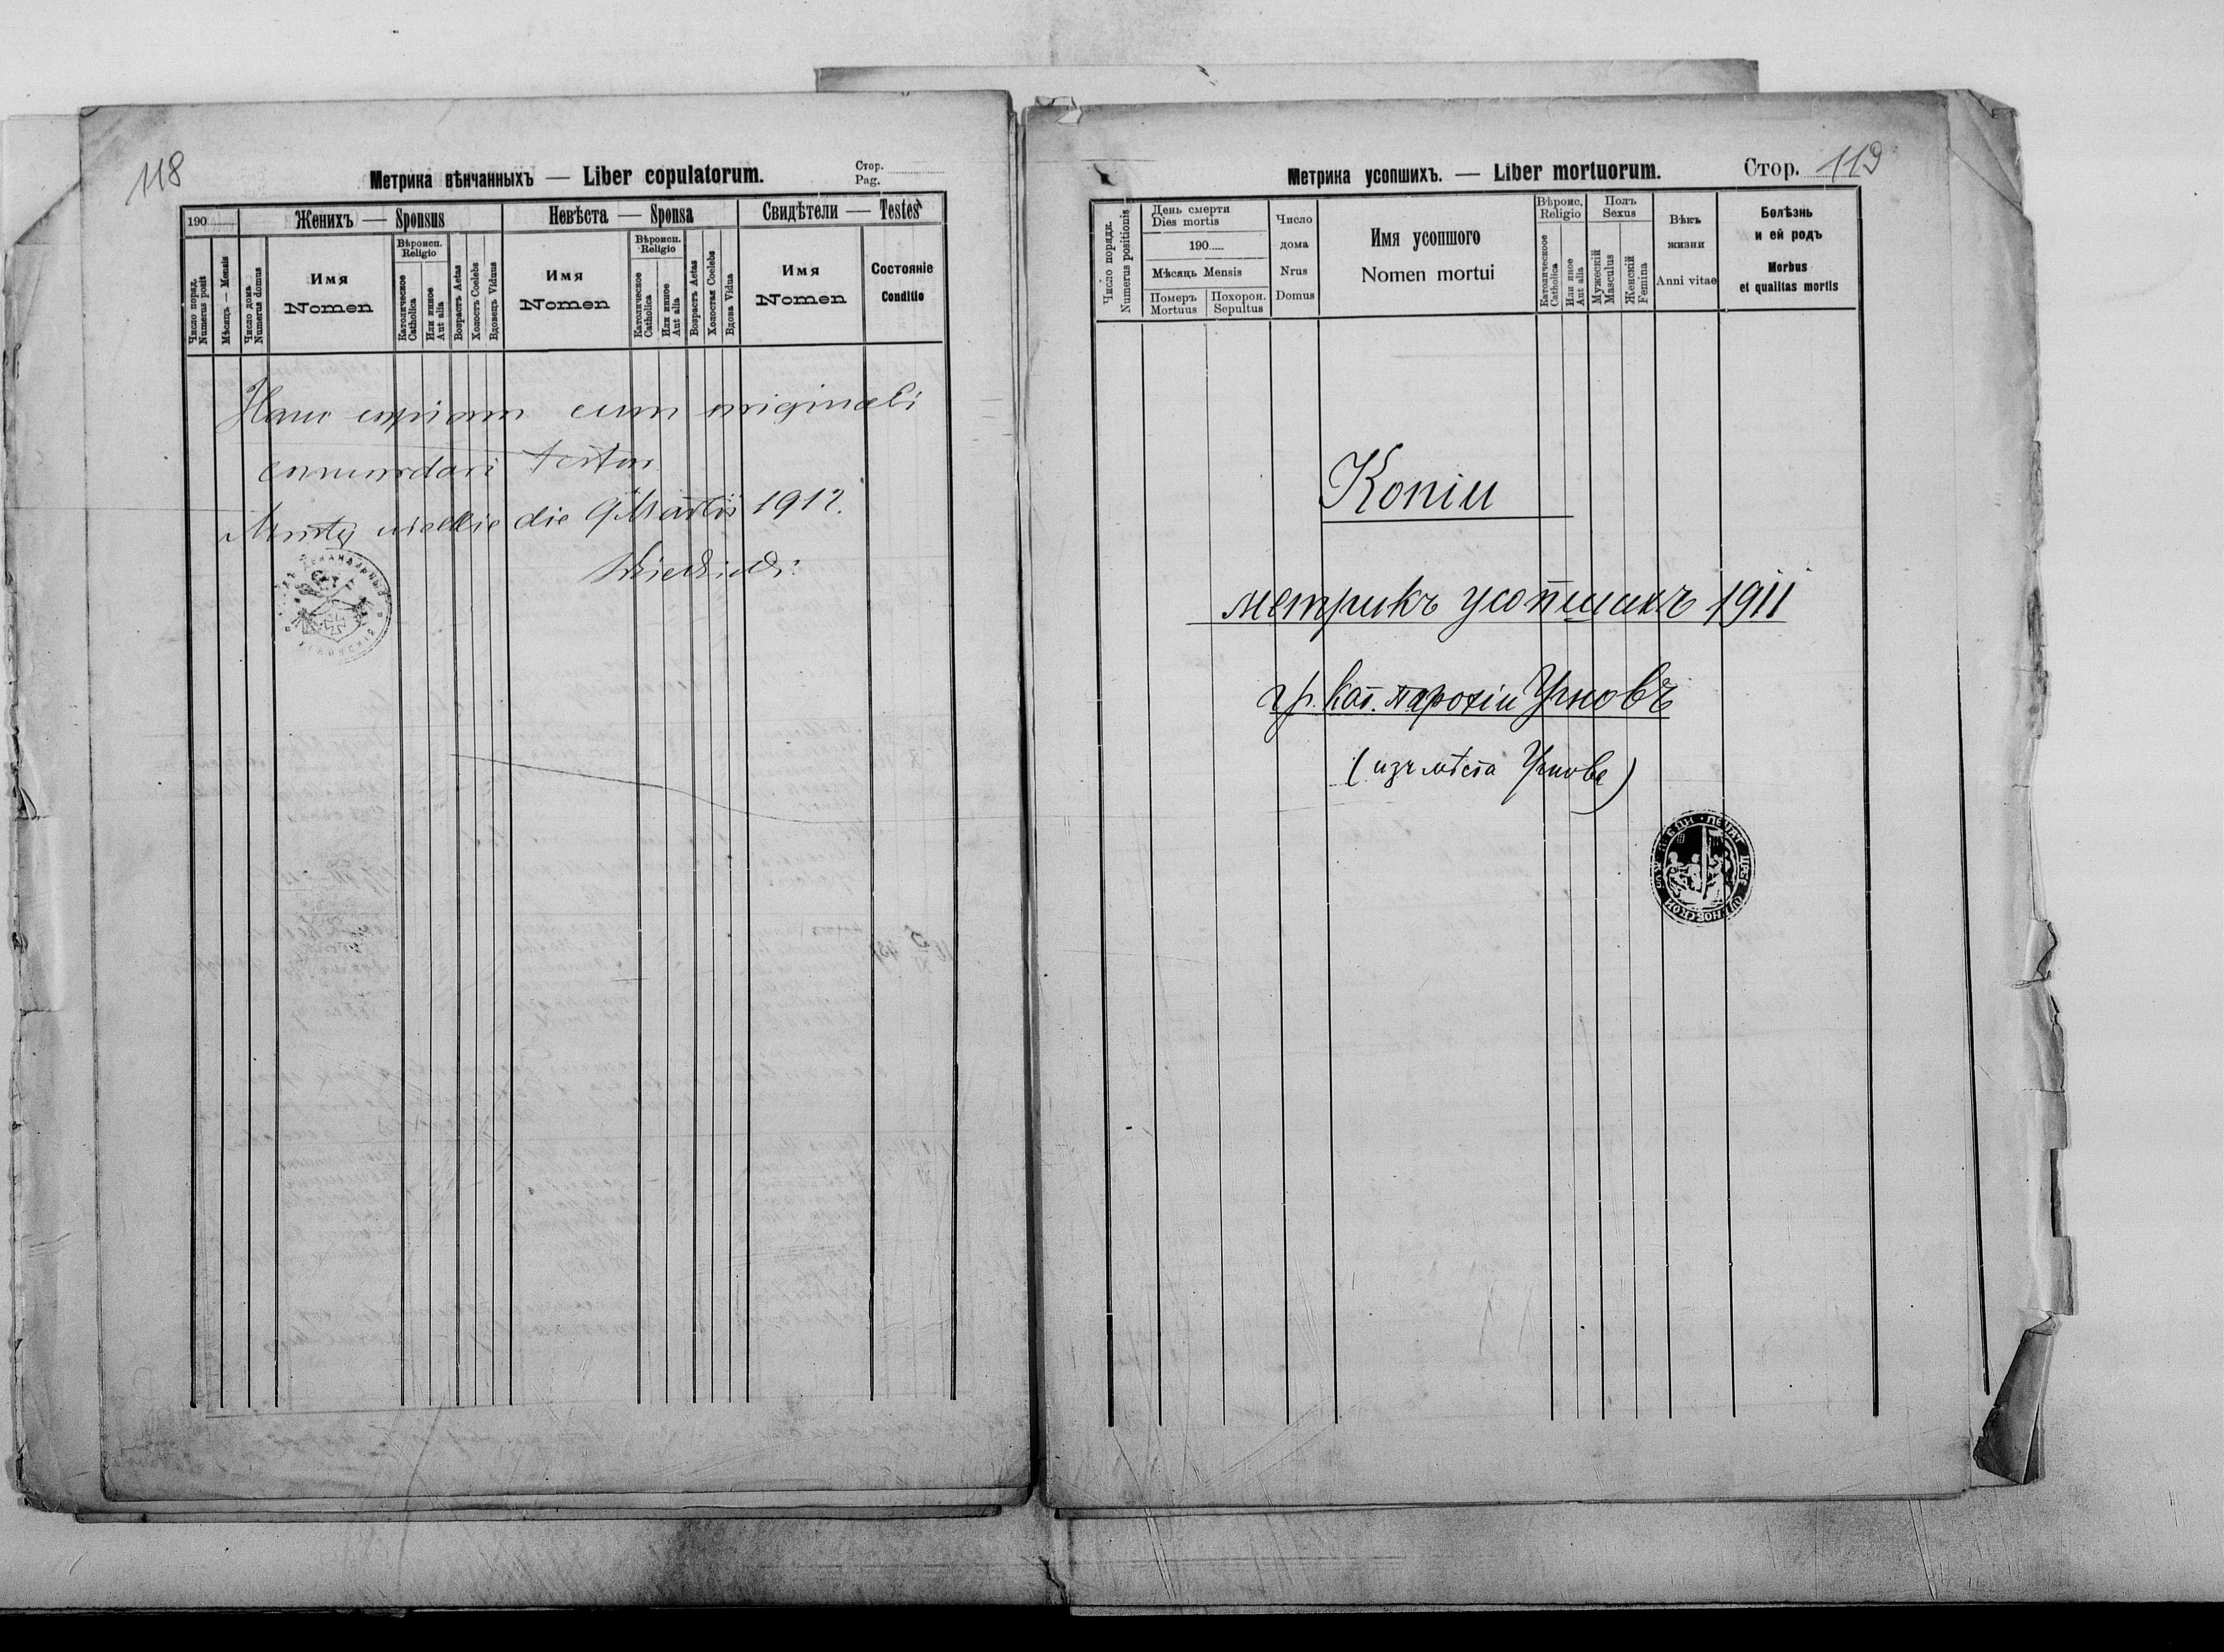 118
Метрика вѣнчанныхъ — Liber copulatorum.
Стор.
Pag.
190
Женихъ — Sponsus
Невѣста — Sponsa
Свидѣтели — Testes
Число поряд.
Numerus posit
Мѣсяць — Mensis
Число дома
Numerus domus
Имя
Nomen
Вѣроисп.
Religio
Католическое
Catholica
Или инное
Aut alia
Возрастъ Aetas
Холостъ Coelebs
Вдовець Viduus
Имя
Nomen
Вѣроисп.
Religio
Католическое
Catholica
Или инное
Aut alia
Возрастъ Aetas
Холостая Coelebs
Вдова Vidua
Имя
Nomen
Состояніе
Conditio
Hanc copiam cum originali
concordari testor
die 9 Martii 1912.
Метрика усопшихъ. — Liber mortuorum.
Стор. 119
Число порядк.
Numerus positionis
День смерти
Dies mortis
190
Мѣсяць Mensis
Померъ
Mortuus
Похорон.
Sepultus
Число
дома
Nrus
Domus
Имя усопшого
Nomen mortui
Вѣроис.
Religio
Католическое
Catholica
Или иное
Aut alia
Полъ
Sexus
Мужескій
Masculus
Женскій
Femina
Вѣкъ
жизни
Anni vitae
Болѣзнь
и ей родъ
Morbus
et qualitas mortis
Копіи
метрикъ усопшихъ 1911
гр. кат. парохіи Угновъ
(изъ мѣста Угнова)